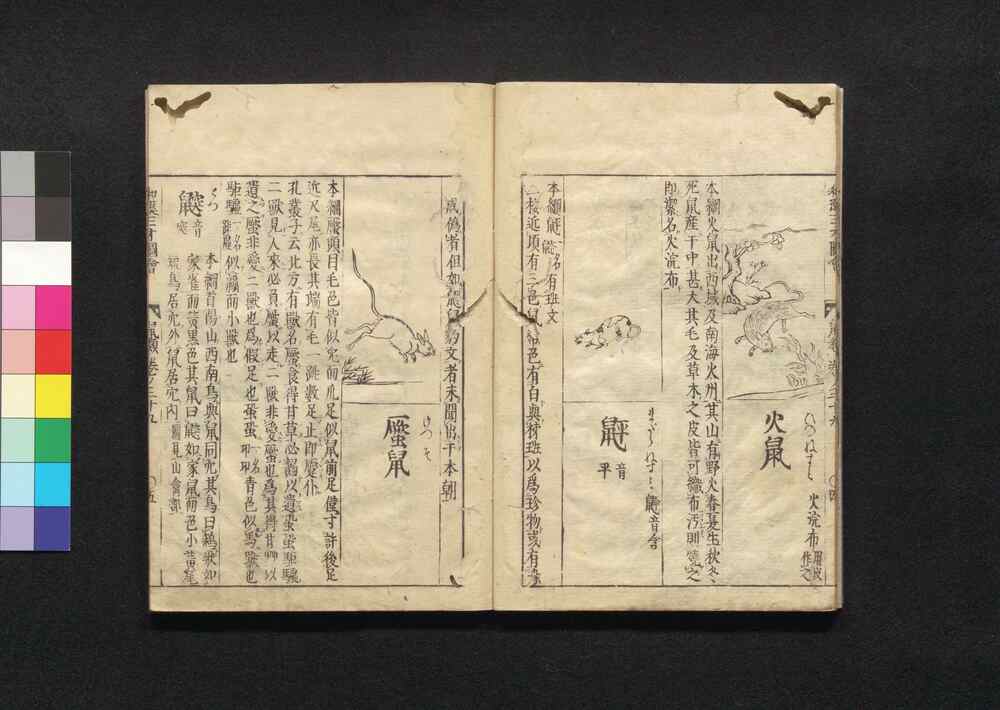 火鼠
ひのねすみ
火浣布
本綱火鼠出西域及南海火州其山有野火春夏生秋冬
死鼠産于中甚大其毛及草木之皮皆可織布汚則燒之
即潔名火浣布
鼮
音平
まだらねすみ
音含
本綱
一名
有班文
△按近頃有三色鼠
有白與
班以爲珍物或有
成偽者但如鼮鼠豹文者未聞出于本朝
蟨鼠
けつそ
本綱蟨頭目毛色皆似兔而爪足似鼠前足僅寸許後足
近尺尾亦長其端有毛一跳數足止即蟨仆
孔叢子云北方有獸名蟨食得甘草必齧以遺蛩蛩駏驉
二獸見人來必負蟨以走二獸非愛蟨也爲其得甘草以
遺之蟨非愛二獸也爲假足也蛩蛩
青色似馬
駏驉
似騾而小獸也
鼵
とつ
音突
本綱首陽山西南鳥與鼠同穴其鳥曰鵌狀如
家雀而黄黒色其鼠曰鼵如家鼠而色小黄尾
短鳥居穴外鼠居穴内
和漢三才圖會